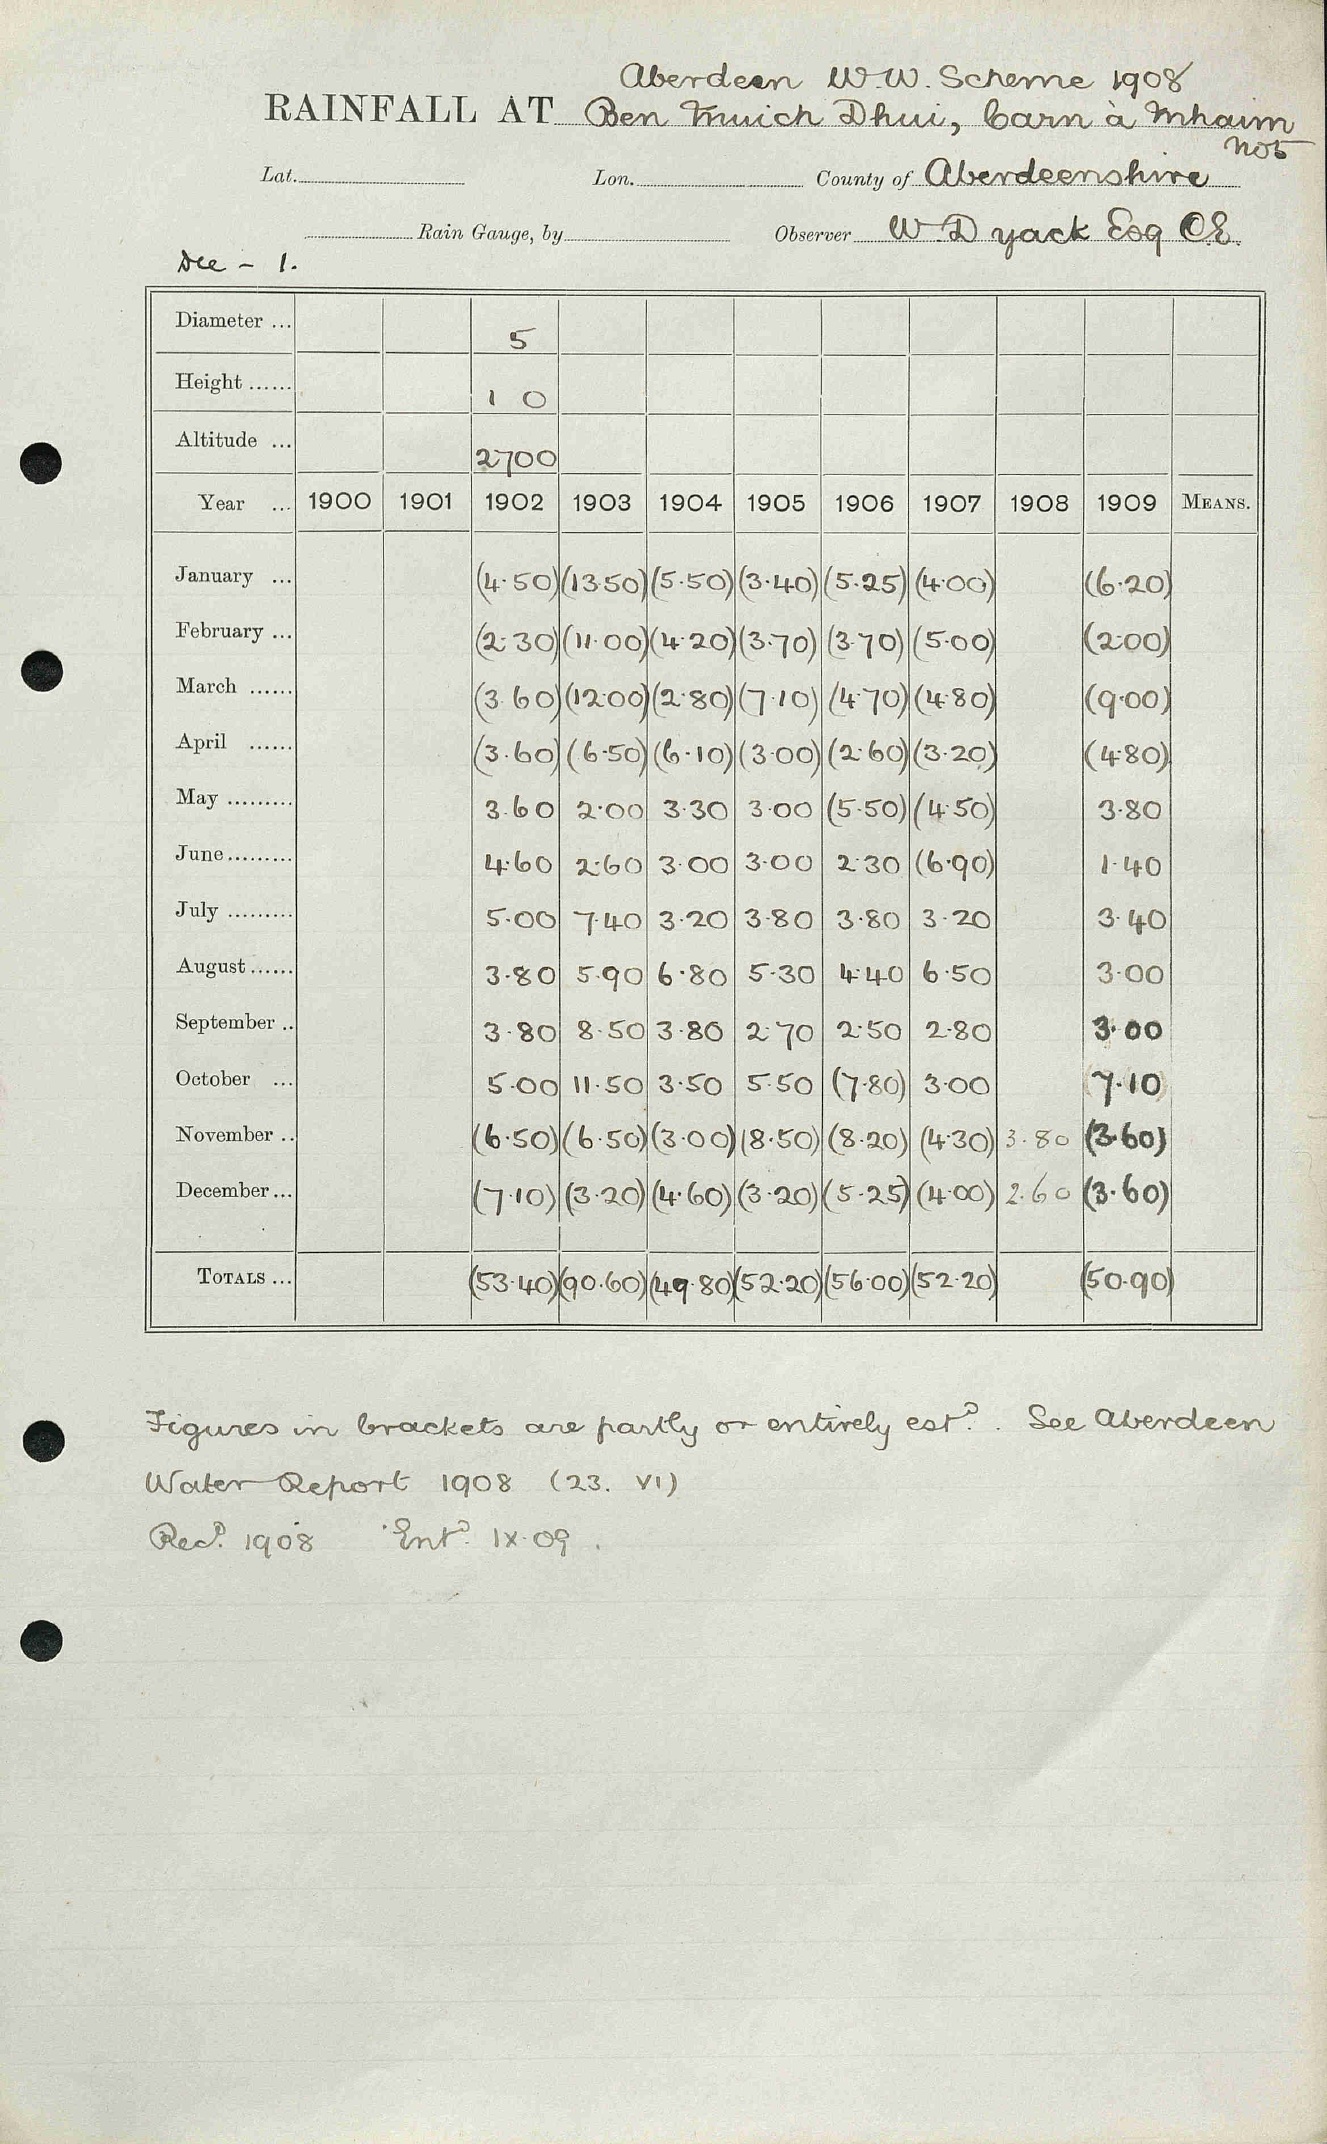 Aberdeen W.W. Scheme 1908
RAINFALL AT Ben Muich Dhui, Carn à Mhaim
No5
Lat. Lon. County of Aberdeenshire
Rain Gauge, by Observer W. Dyack Esq CE.
Dee - 1.
Diameter ... 5
Height ...... 1 0
Altitude ... 2700
Year ... 1900 1901 1902 1903 1904 1905 1906 1907 1908 1909 MEANS.
January ... (4.50) (13.50) (5.50) (3.40) (5.25) (4.00) (6.20)
February ... (2.30) (11.00) (4.20) (3.70) (3.70) (5.00) (2.00)
March ...... (3.60) (12.00) (2.80) (7.10) (4.70) (4.80) (9.00)
April ...... (3.60) (6.50) (6.10) (3.00) (2.60) (3.20) (4.80)
May ......... 3.60 2.00 3.30 3.00 (5.50) (4.50) 3.80
June ......... 4.60 2.60 3.00 3.00 2.30 (6.90) 1.40
July ......... 5.00 7.40 3.20 3.80 3.80 3.20 3.40
August ...... 3.80 5.90 6.80 5.30 4.40 6.50 3.00
September .. 3.80 8.50 3.80 2.70 2.50 2.80 3.00
October ... 5.00 11.50 3.50 5.50 (7.80) 3.00 7.10
November .. (6.50) (6.50) (3.00) (8.50) (8.20) (4.30) 3.80 (3.60)
December ... (7.10) (3.20) (4.60) (3.20) (5.25) (4.00) 2.60 (3.60)
TOTALS ... (53.40) (90.60) (49.80) (52.20) (56.00) (52.20) (50.90)
Figures in brackets are partly or entirely estd. See Aberdeen
Water Report 1908 (23. VI)
Recd. 1908 Entd. IX.09.